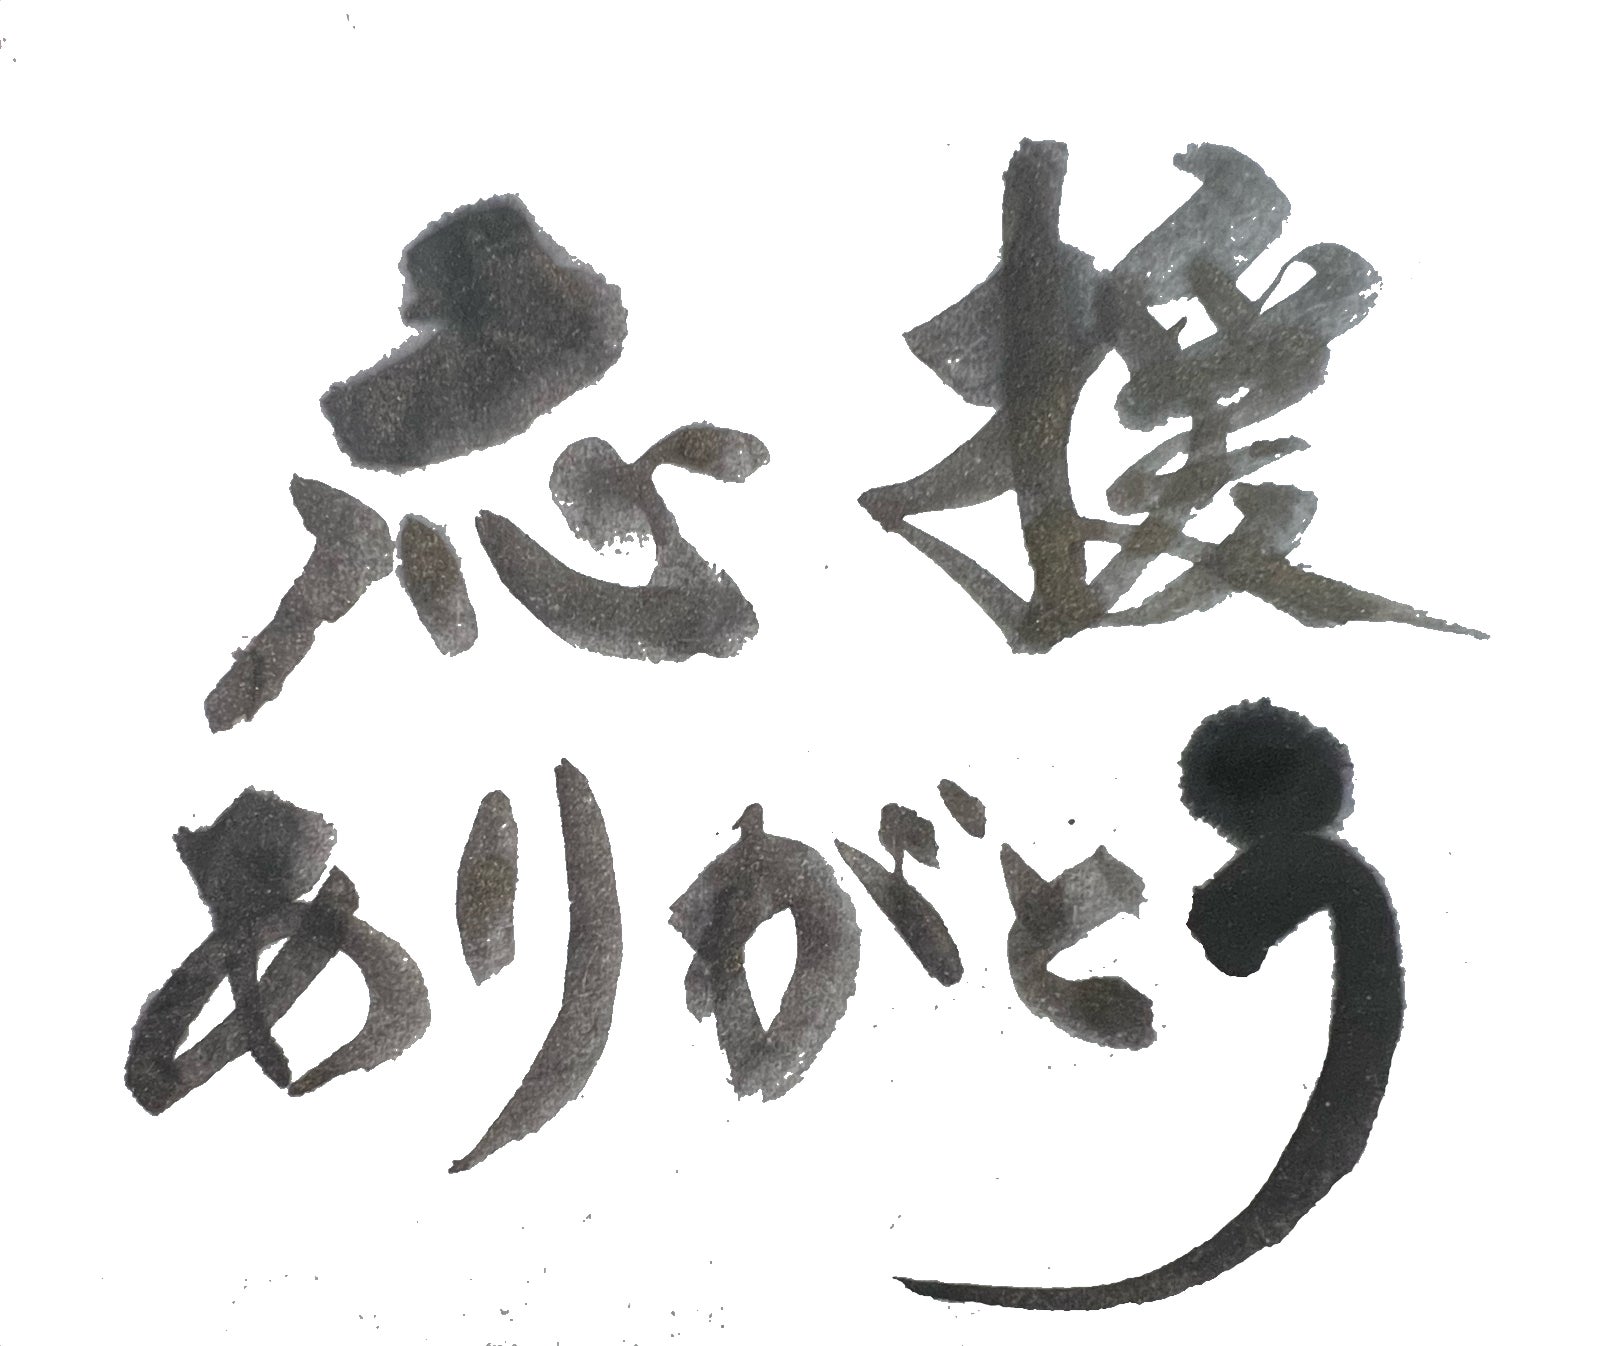 応援
ありがとう